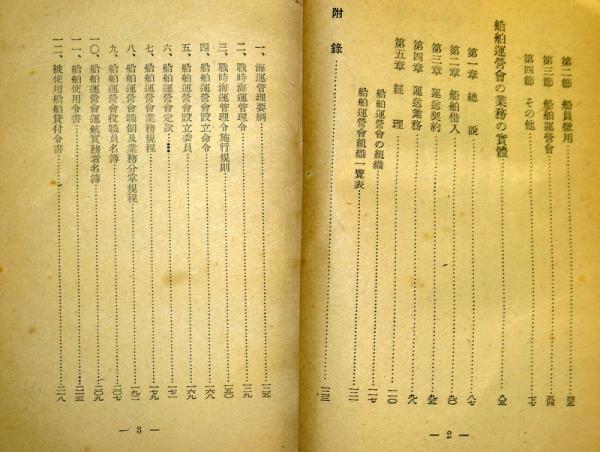 第二節 船員徵用
第三節 船舶運營會
第四節 その他
船舶運營會の業務の實體
第一章 總說
第二章 船舶借入
第三章 運送契約
第四章 運送業務
第五章 經理 一一〇
船舶運營會の組織 一一七
船舶運營會組織一覽表 一二一
附錄
— 2 —
一、海運管理要綱
二、戰時海運管理令
三、戰時海運管理令施行規則
四、船舶運營會設立命令
五、船舶運營會設立委員
六、船舶運營會定款
七、船舶運營會業務規程
八、船舶運營會職制及業務分掌規程
九、船舶運營會役職員名簿 二〇七
一〇、船舶運營會運航實務者名簿 二〇九
一一、船舶使用令書 二一五
一二、被使用船舶貸付令書 二一八
— 3 —